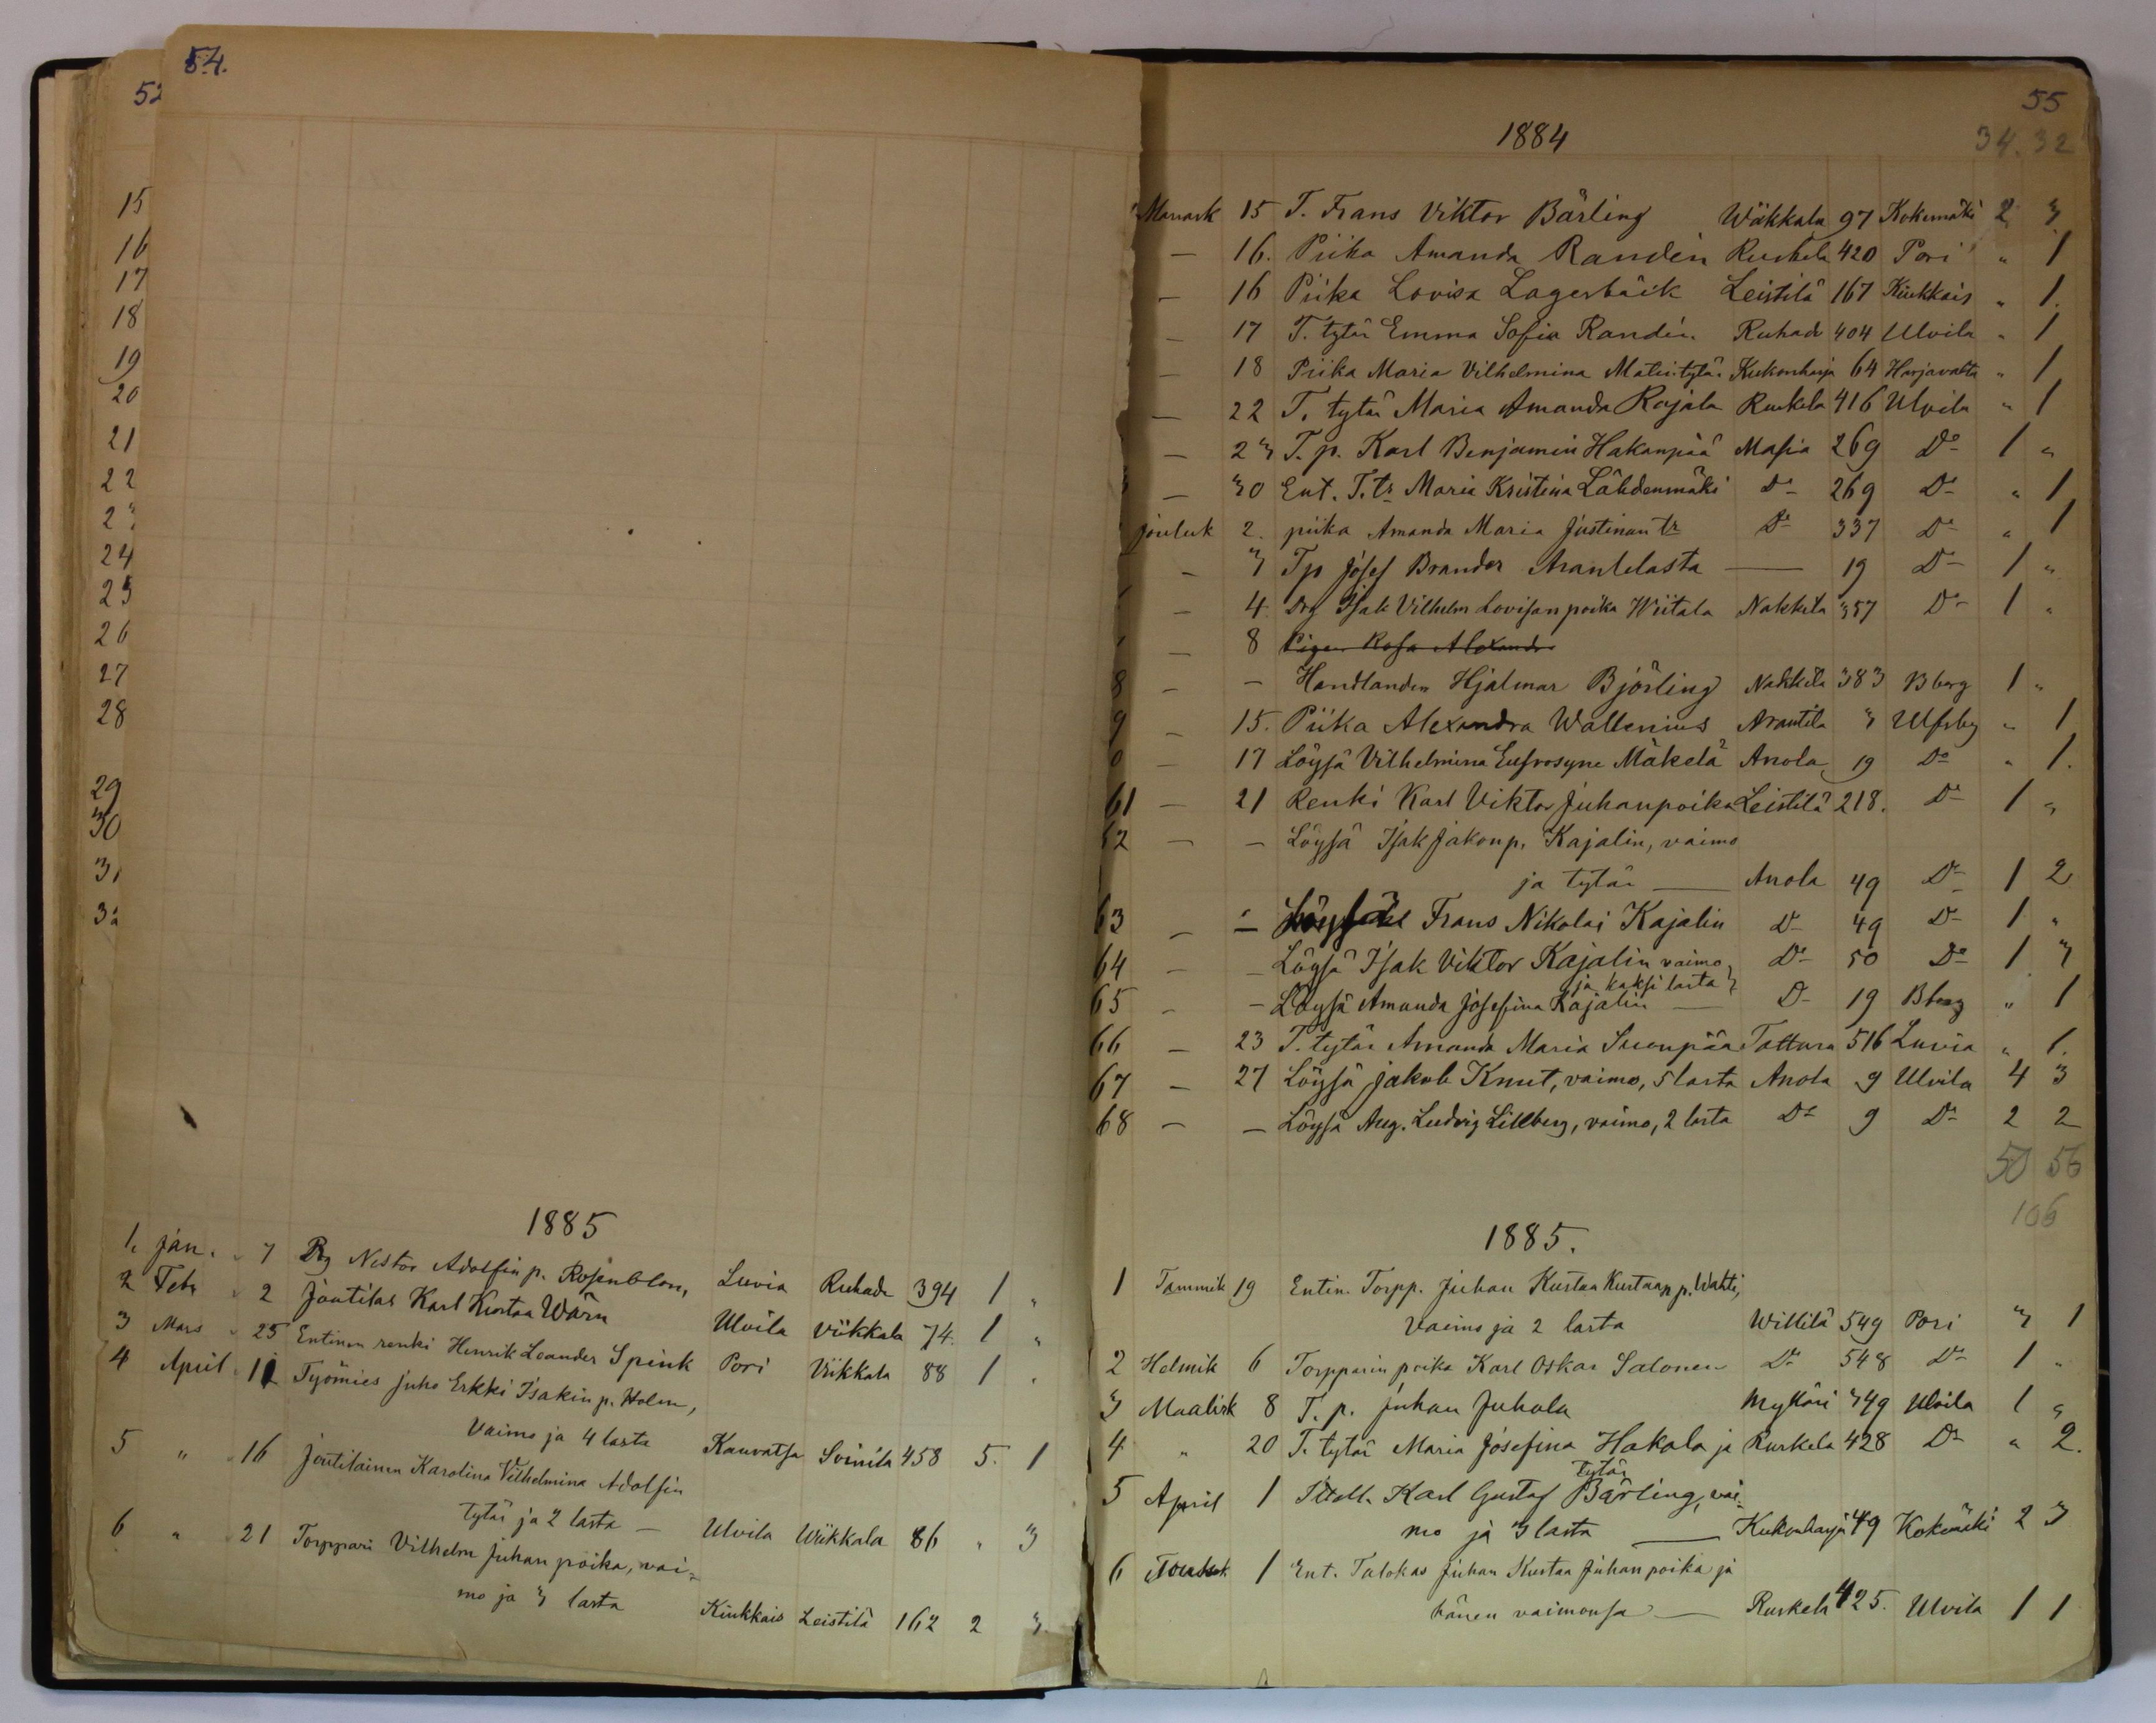 52
15
16
17
18
19
20
21
22
24
25
26
27
28
29
30
54.
1885
1. Jan. 7 Drg Nestor Adolfin p. Rosenblom, Luvia Ruhade 394 1 "
2 Febr 2 Joutilas Karl Kustaa Wärn Ulvila Viikkala 74. 1 "
3 Mars 25 Entinen renki Henrik Leander Spink Pori Viikkala 88 1 "
4 April 11 Työmies Juho Erkki Isakin p. Holm,
Vaimo ja 4 lasta Kauvatsa Soinila 458 5. 1
5 " 16 Joutilainen Karolina Vilhelmina Adolfin
tytär ja 2 lasta — Ulvila Wiikkala 86 " 3
6 " 21 Torppari Vilhelm Juhan poika, vai-
mo ja 3 lasta Kiukkais Leistilä 162 2 3.
55
34. 32
1884
Marrask 15 T. Frans Viktor Bärling Wiikkala 97 Kokemäki 2 3.
— 16. Piika Amanda Randen Ruskela 420 Pori " 1
— 16 Piika Lovisa Lagerbäck Leistilä 167 Kiukkais " 1.
— 17 T. tytär Emma Sofia Randén Ruhade 404 Ulvila " 1
— 18 Piika Maria Vilhelmina Matintytär Kukonharja 64 Harjavalta " 1
— 22 T. tytär Maria Amanda Rajala Ruskela 416 Ulvila " 1
— 23 T. p. Karl Benjamin Hakanpää Masia 269 Do 1 "
— 30 Ent. T. tr Maria Kristina Lähdenmäki Do 269 Do " 1
Jouluk 2. piika Amanda Maria Justinan tr Do 337 Do " 1
— 3 Tp Josef Brander Arantilasta — 19 Do 1 "
— 4. Drg Isak Vilhelm Lovisan poika Wiitala Nakkila 357 Do 1 "
— 8 Pigan Rosa Alexandra
8 — — Handlanden Hjalmar Björling Nakkila 383 Bborg 1 "
9 — 15. Piika Alexandra Wallenius Arantila 3 Ulfsby " 1
0 — 17 Löysä Vilhelmina Eufrosyne Mäkelä Anola 19 Do " 1.
61 — 21 Renki Karl Viktor Juhanpoika Leistilä 218. Do 1 "
62 — — Löysä Isak Jakon p. Kajalin, vaimo
ja tytär — Anola 49 Do 1 2
63 — — Frans Nikolai Kajalin Do 49 Do 1 "
64 — — Löysä Isak Viktor Kajalin vaimo Do 50 Do 1 3
ja kaksi lasta
65 — — Löysä Amanda Josefina Kajalin — Do 19 Bborg " 1
66 — 23 T. tytär Amanda Maria Suonpää Tattara 516 Luvia " 1.
67 — 27 Löysä Jakob Knut, vaimo, 5 lasta Anola 9 Ulvila 4 3
68 — — Löysä Aug. Ludvig Lillberg, vaimo, 2 lasta Do 9 Do 2 2
50 56
106
1885.
1 Tammik 19 Entin. Torpp. Juhan Kustaa Kustaan p. Wahti,
vaimo ja 2 lasta Willilä 549 Pori 3 1
2 Helmik 6 Torpparin poika Karl Oskar Salonen Do 548 Do 1 "
3 Maalisk 8 T. p. Juhan Juhola Mylläri 349 Ulvila 1 "
4 " 20 T. tytär Maria Josefina Hakala ja Ruskela 428 Do " 2.
tytär
5 April 1 Karl Gustaf Bärling, vai-
mo ja 3 lasta — Kukonharja 49 Kokemäki 2 3
6 Toukok 1 Ent. Talokas Juhan Kustaa Juhan poika ja
hänen vaimonsa — Ruskela 425. Ulvila 1 1